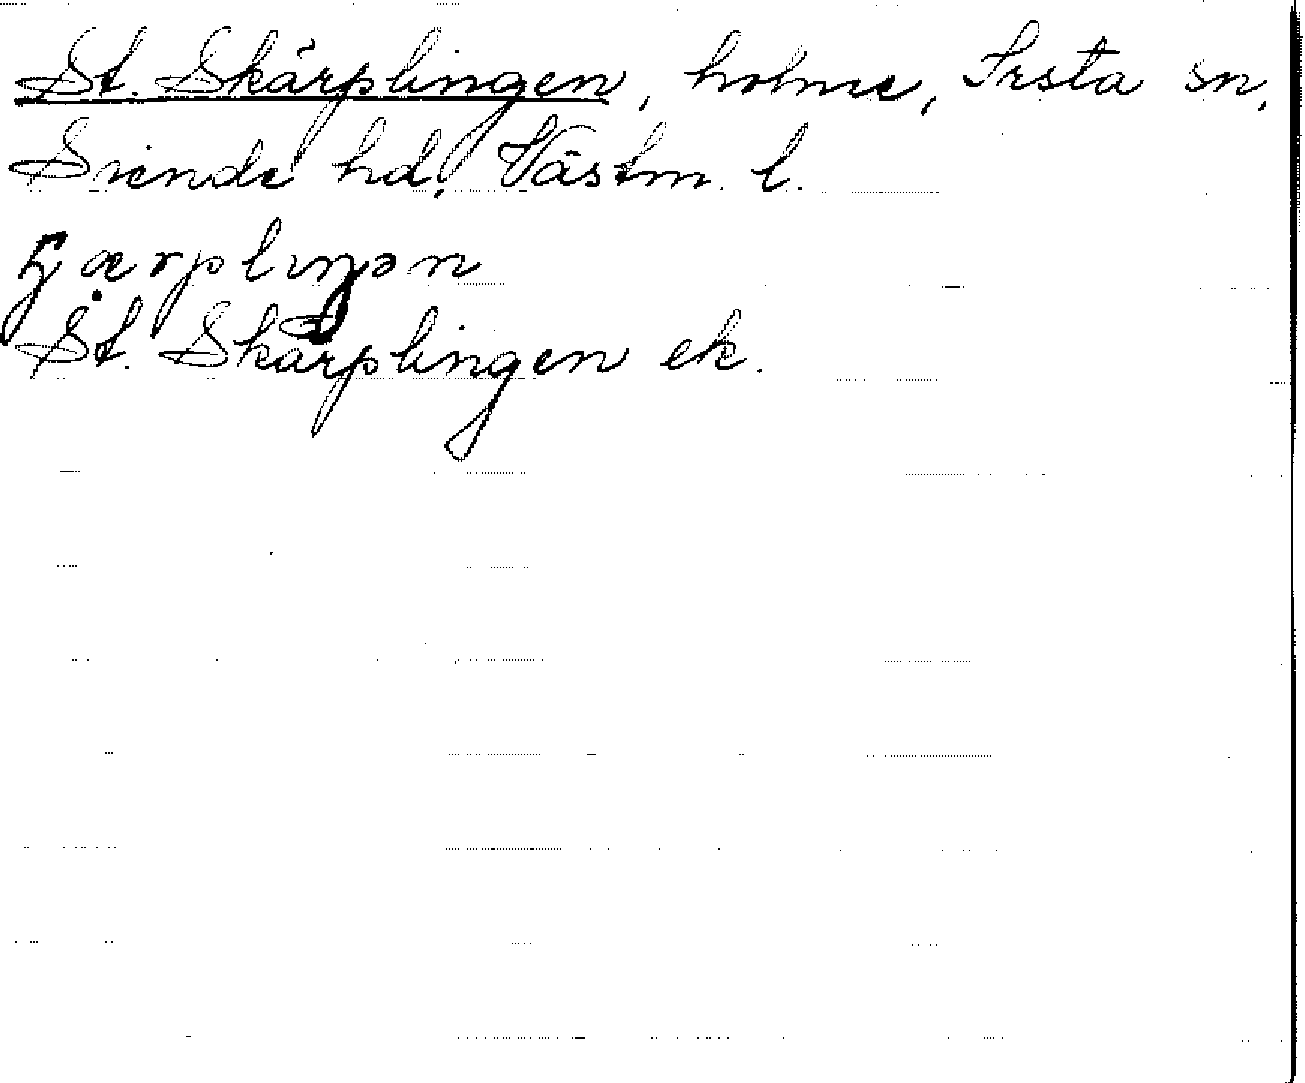 St. Skärplingen, holme, Irsta sn,
Siende hd, Västm. l.
ɧærplıŋən
St. Skärplingen ek.